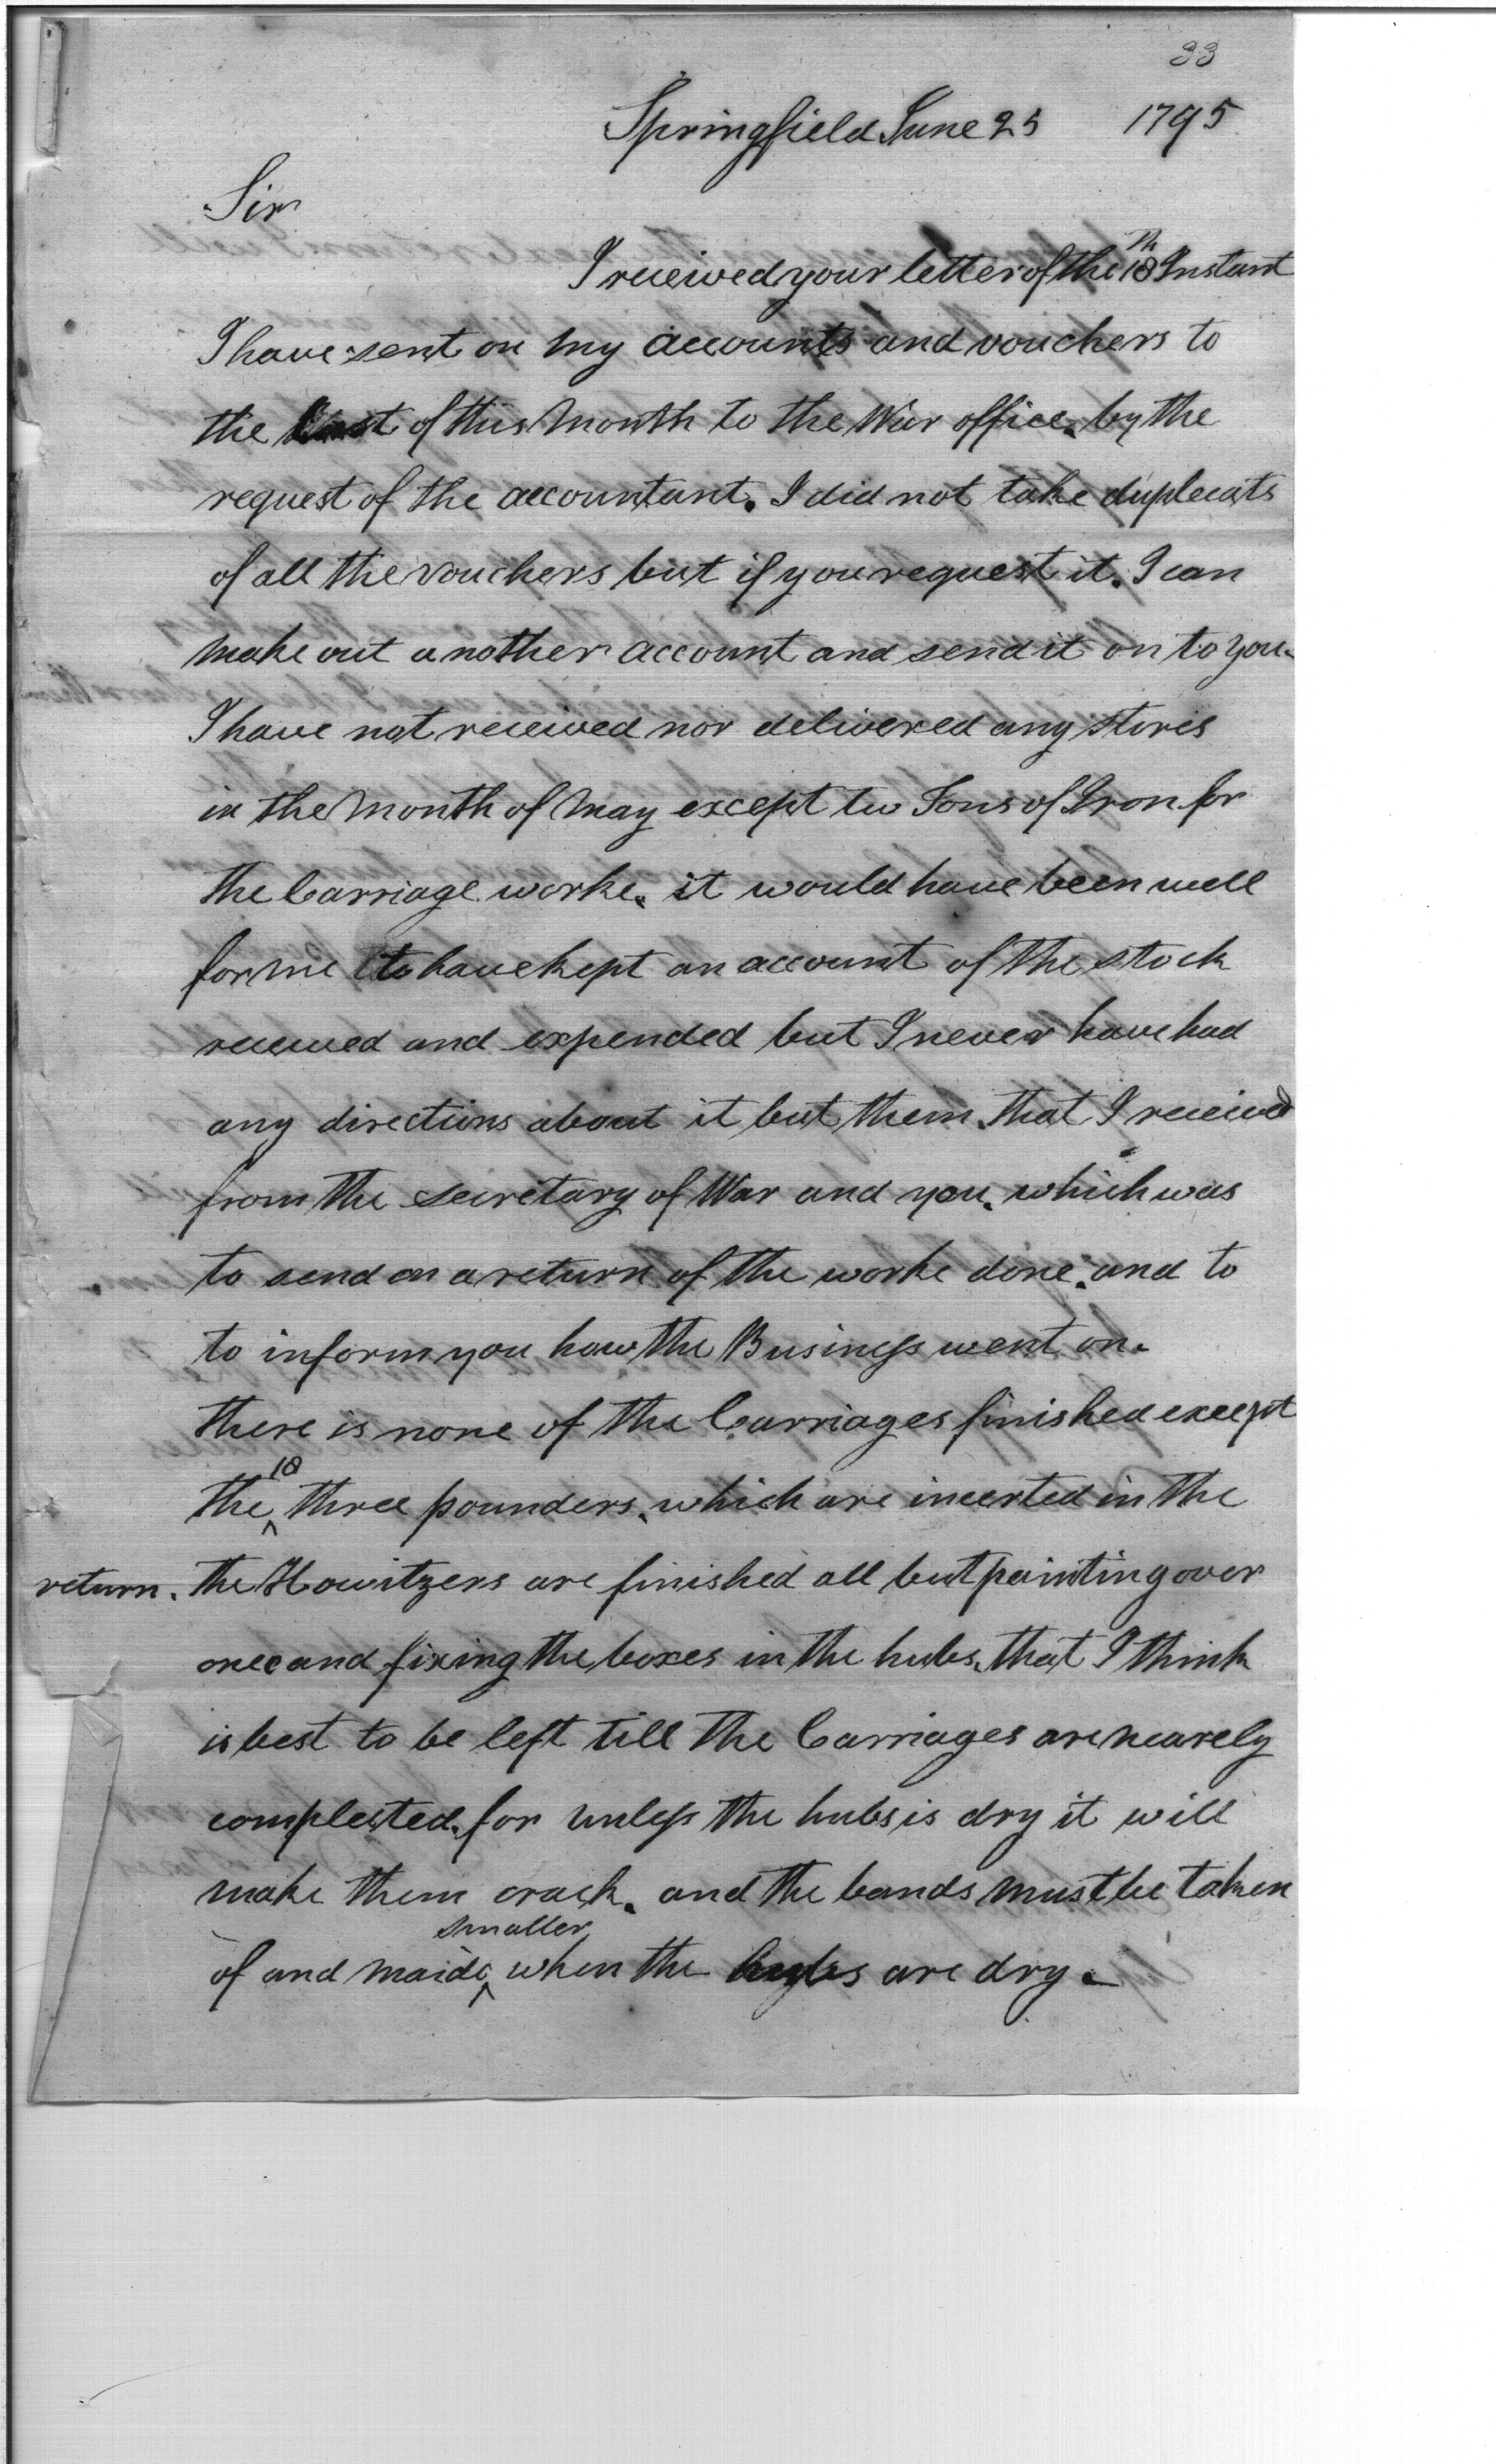 33
Springfield June 25 1795
Sir
I received your letter of the 18th Instant
I have sent on my accounts and vouchers to
the last of this Month to the War office. by the
request of the accountant. I did not take duplecats
of all the vouchers but if you request it. I can
make out another account and send it on to you.
I have not received nor delivered any stores
in the Month of May except two Tons of Iron for
the Carriage worke. it would have been well
for me to have kept an account of the stock
received and expended but I never have had
any directions about it but them that I received
from the secretary of War and you. which was
to send on a return of the worke done. and to
to inform you how the Business went on.
there is none of the Carriages finished except
the ^18 three pounders. which are incerted in the
return. the Howitzers are finished all but painting over
once and fixing the boxes in the hubs. that I think
is best to be left till the Carriages are nearely
compleated. for unless the hubs is dry it will
make them crack. and the bands must be taken
of and maide ^smaller when the hubs are dry.